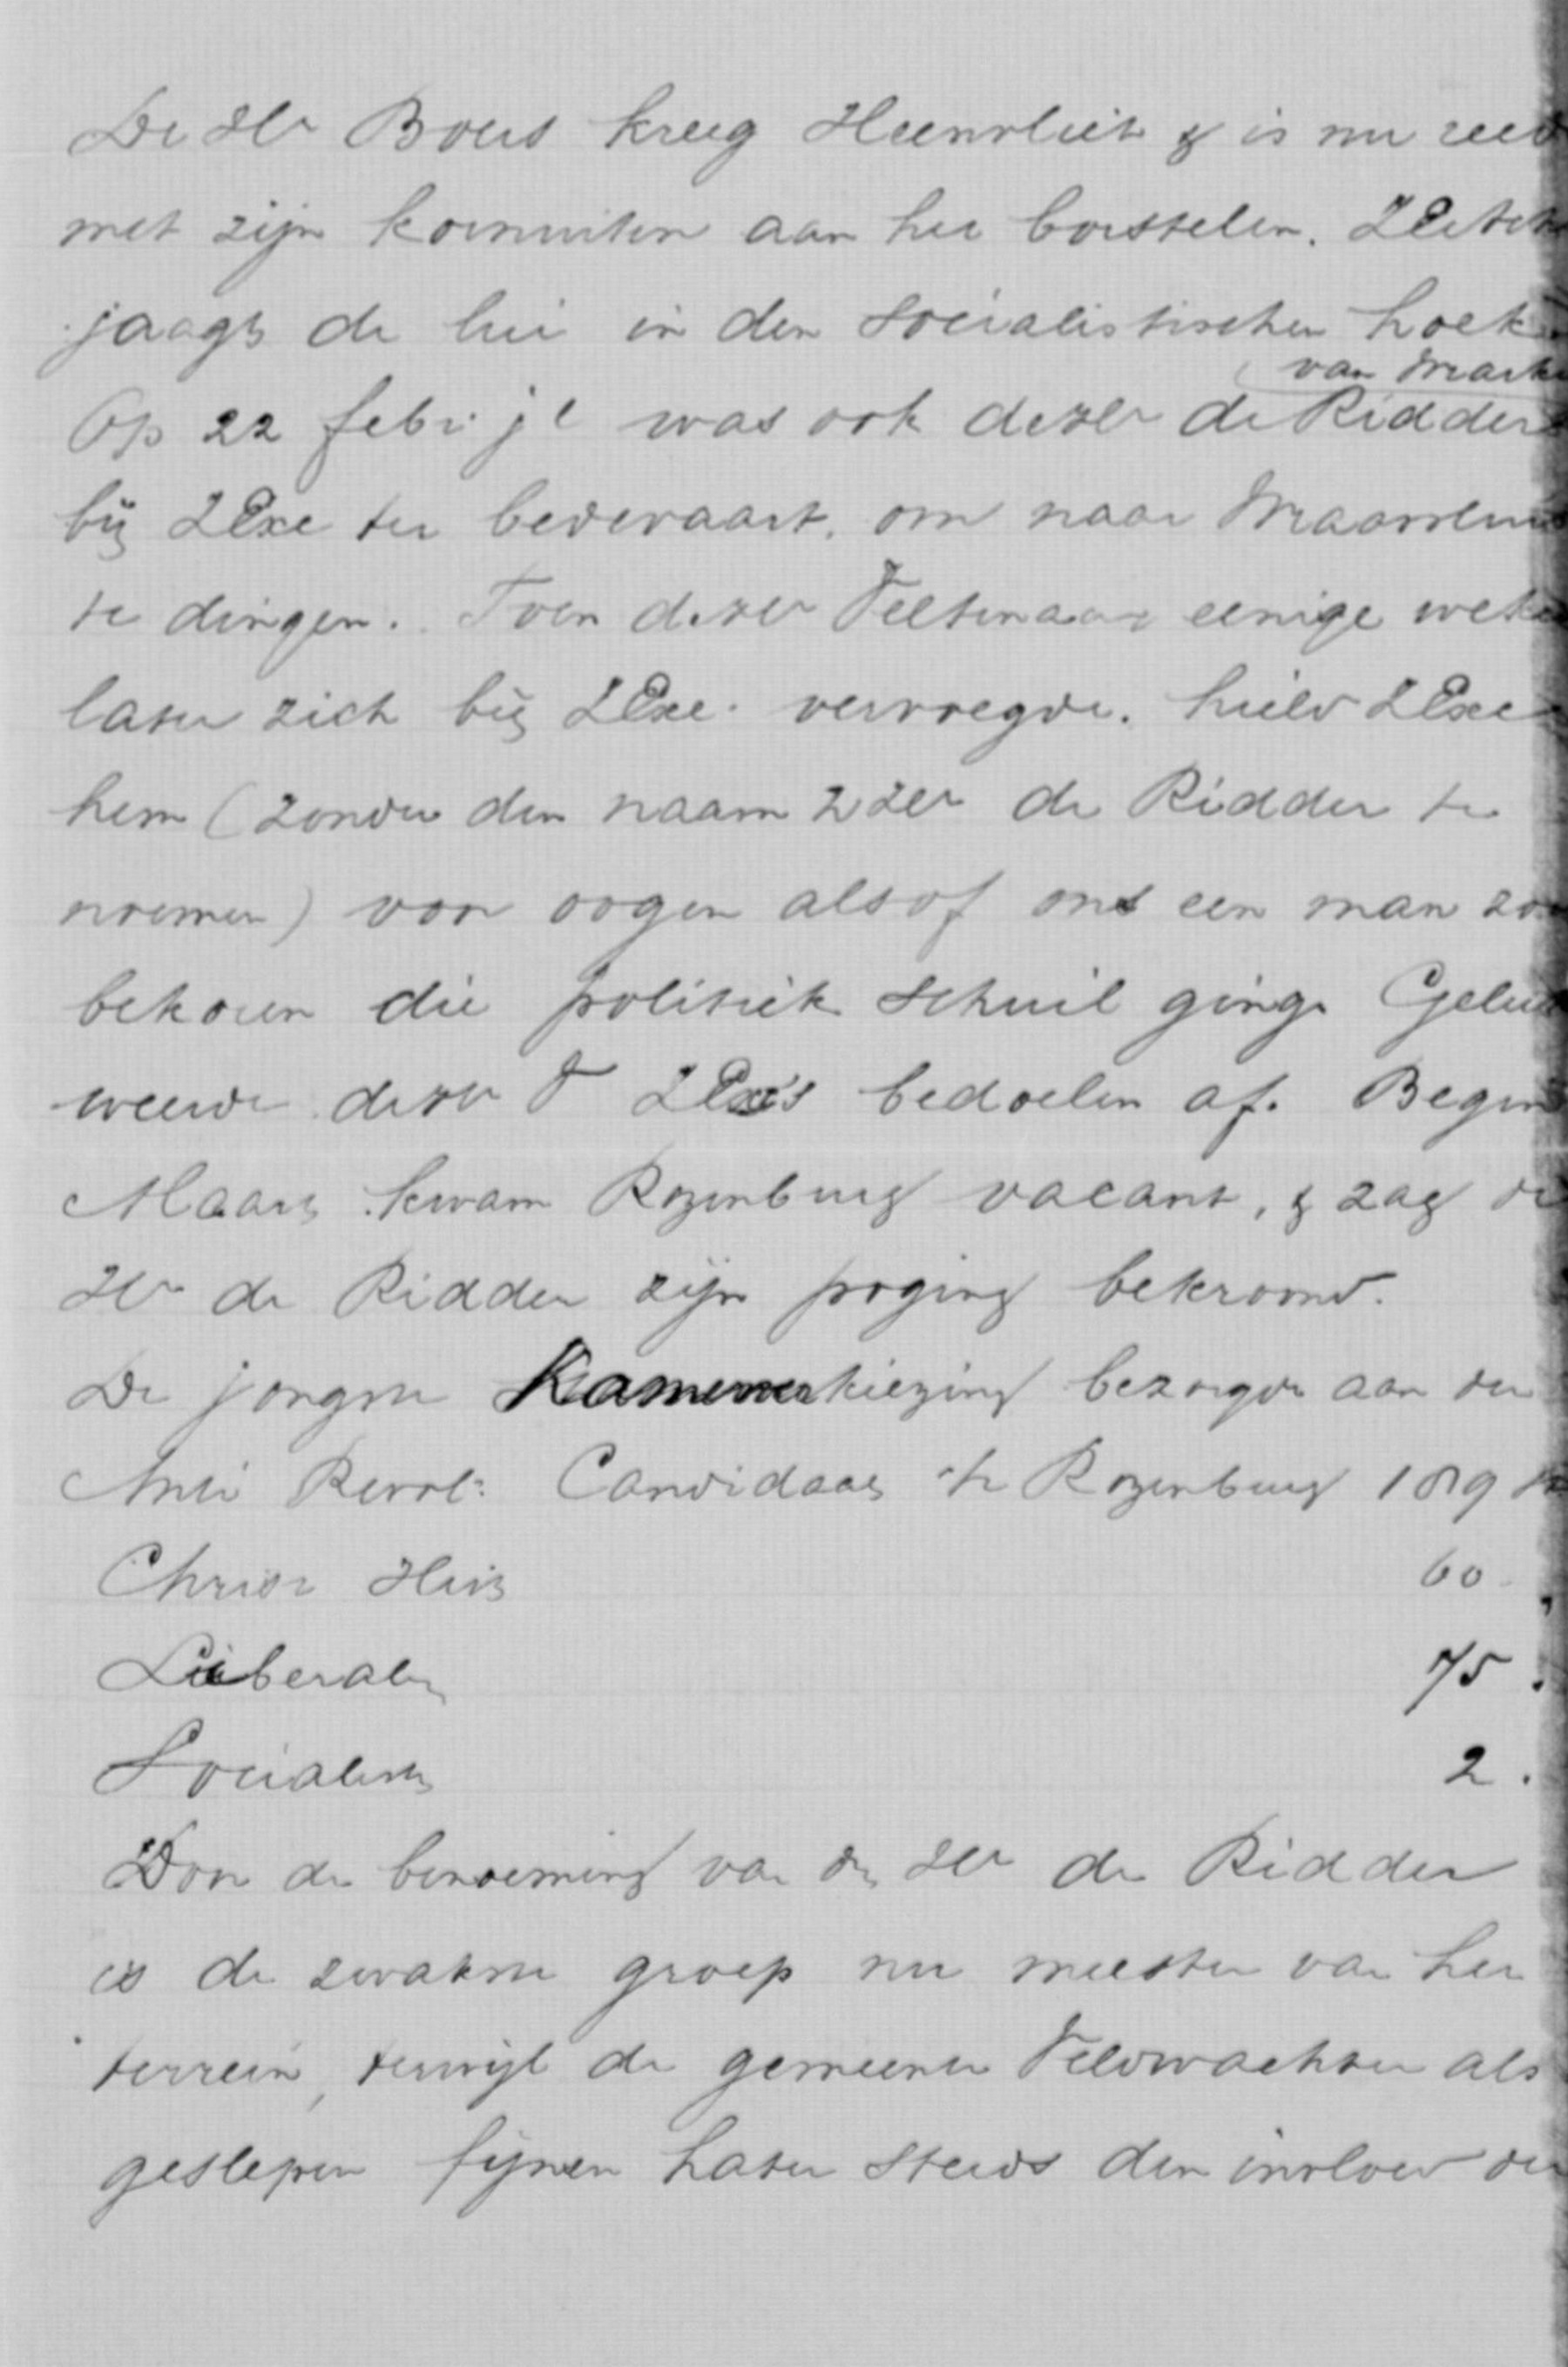 De Hr Boers kreeg Heenvliet & is nu reed
met zijn kornuiten aan het borstelen. ZExc
jaagt de lui in den Socialistischen hoek.
van Mark
Op 22 febr. jl was ook deze Hr de Ridder
bij ZExc ter bedevaart, om naar Maassluis
te dingen. Toen deze Hr Veltenaar eenige weke
later zich bij ZExc. vervoegde. hield ZExc
hem (zonder den naam v Hr de Ridder te
noemen) voor oogen alsof ons een man zou
bekoren die politiek schuil ging. Geluk
weerde deze Hr V ZExc's bedoelen af. Begin
Maart kwam Rozenburg vacant, & zag de
Hr de Ridder zijn poging bekroond.
De jongste Kamerverkiezing bezorgde aan den
Anti Revol: Candidaat te Rozenburg 189 st
Christ Hist 60 "
Liberalen 75 "
Socialisten 2 "
Door de benoeming van den Hr de Ridder
is de zwakste groep nu meester van het
terrein, terwijl de gemeente Veldwachter als
geslepen fijnen hater steeds den invloed der